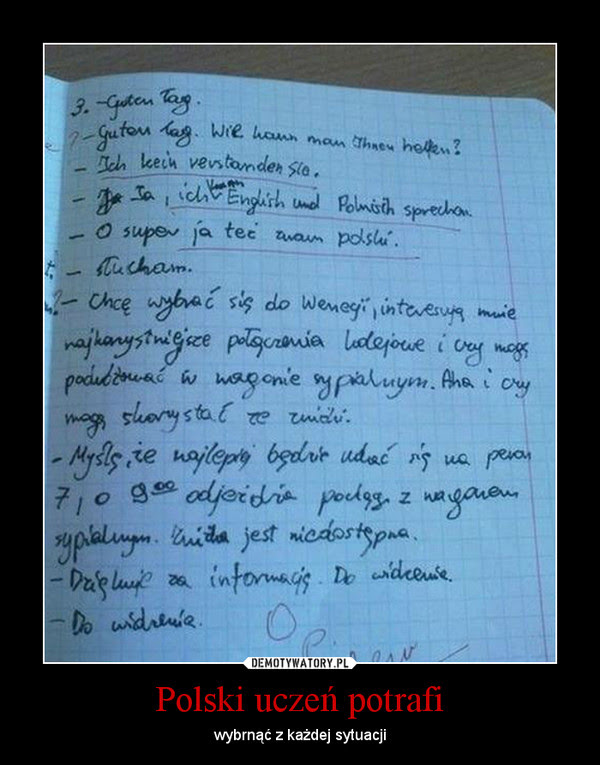 3. - Guten Tag.
? - Guten Tag. Wie kann man Ihnen helfen?
- Ich kein verstanden Sie.
- Ja, ich kann English und Polnisch sprechen.
- O super ja też znam polski.
- Słucham.
- Chcę wybrać się do Wenegi, interesują mnie
najkorzystniejsze połączenia kolejowe i czy mogę
podróżować w wagonie sypialnym. Aha i czy
mogę skorzystać ze zniżki.
- Myślę, że najlepiej będzie udać się na peron
7, o 9⁰⁰ odjeżdża pociąg z wagonem
sypialnym. Zniżka jest niedostępna.
- Dziękuję za informację. Do widzenia.
- Do widzenia.
DEMOTYWATORY.PL
Polski uczeń potrafi
wybrnąć z każdej sytuacji